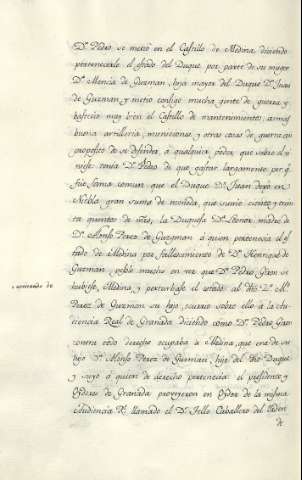 Dn. Pedro se metió en el Castillo de Medina diciendo
pertenecerle el estado del Duque por parte de su muger
Da. Mencia de Guzman, hija mayor del Duque Dn. Juan
de Guzman, y metio consigo mucha gente de guerra y
basteció muy bien el Castillo de mantenimientos armas
buena artilleria municiones, y otras cosas de guerra con
proposito de se defender, á qualquier poder, que sobre él vi
niese tenia Dn. Pedro de que gastar largamente por q.
fué fama comun, que el Duque Dn. Juan dejó en
Niebla gran suma de moneda, que sumó ciento y
quentos de mrs, la Duquesa Da. Leonor madre de
Dn. Alonso Perez de Guzman á quien pertenecia el es
tado de Medina por fallecimiento de Dn. Henrique de
Guzman mucho en ver que Dn. Pedro Giron se
hubiese, Medina y perturbase el estado al
Perez de Guzman su hijo, ocurrio sobre ello á la Au
diencia Real de Granada diciendo como Dn. Pedro Giron
contra todo derecho ocupaba á Medina, que era de su
hijo Dn. Alonso Perez de Guzman, hijo del dho Duque
y cuyo á quien de derecho pertenecia el presidente y
Oydores de Granada proveyeron un Oydor de la misma
Audiencia Rl. llamado el Dr. Tello Caballero del Orden
de